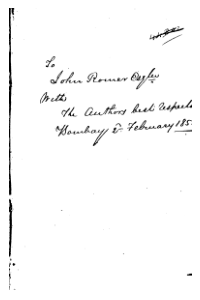 To
John Romer Esqre
With
The Authors best respects
Bombay 2d February 185